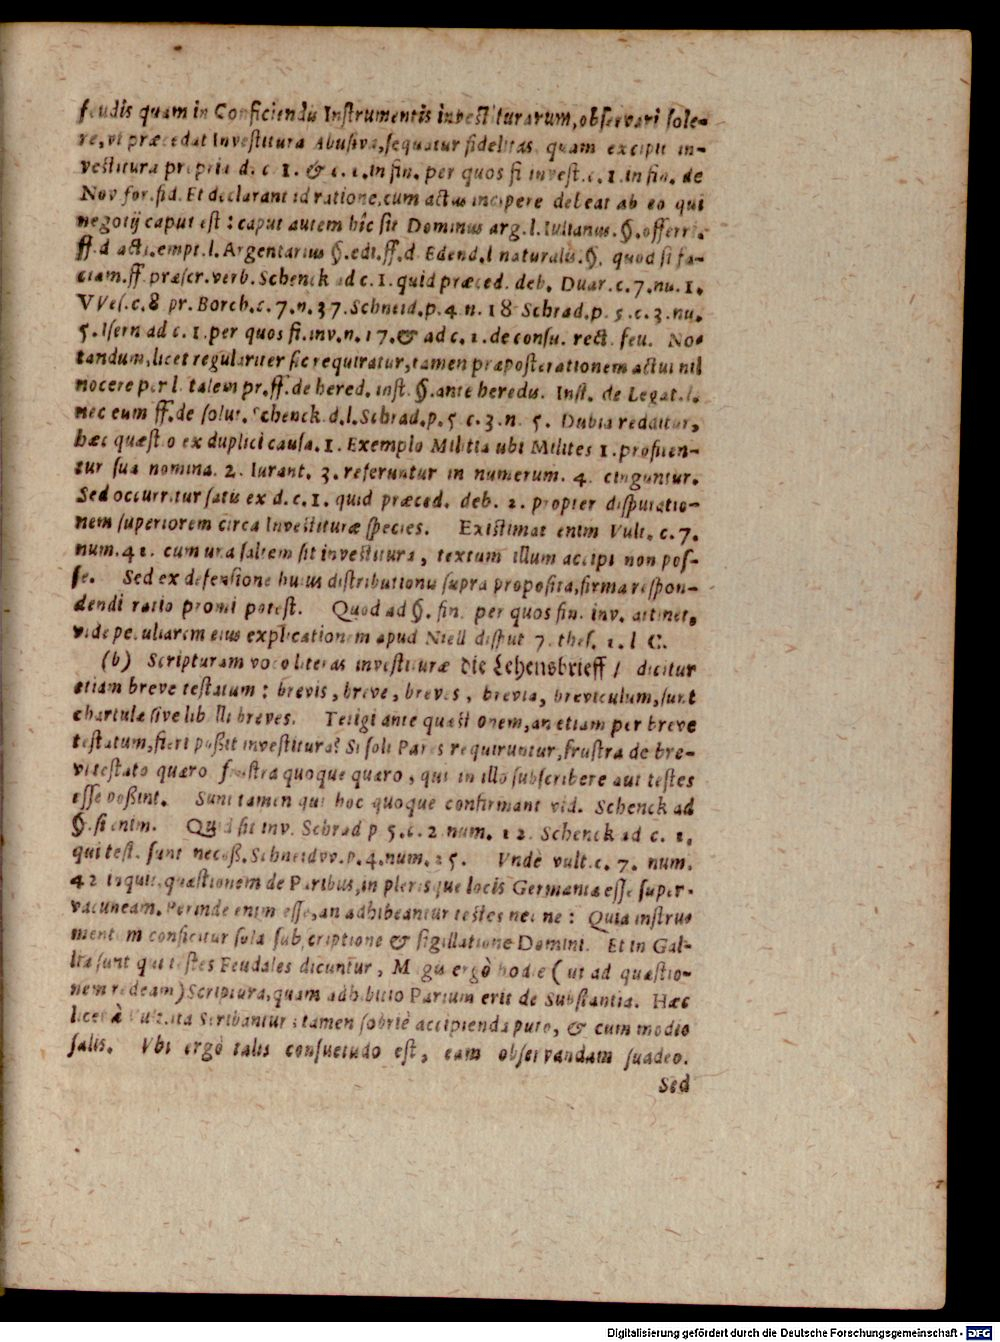 feudis quam in Conficiendis Instrumentis investiturarum, observari sole-
re, vt præcedat Investitura Abusiva, sequatur fidelitas quam excipit in-
vestitura propria d. c 1. & c. 1. in fin. per quos fi invest. c. 1. in fin. de
Nov for. fid. Et declarant id ratione, cum actus incipere debeat ab eo qui
negotij caput est: caput autem hîc sit Dominus arg. l. Iulianus. §. offerri.
ff. d act. empt. l. Argentarius §. edi. ff. d. Edend. l naturalis. §. quod si fa-
ciam. ff præscr. verb. Schenck ad c. 1. quid præced. deb. Duar. c. 7. nu. 1.
VVes. c. 8 pr. Borch. c. 7. n. 37. Schneid. p. 4. n. 18 Schrad. p. 5. c. 3. nu.
5. Isern ad c. 1. per quos fi. inv. n. 17. & ad c. 1. de consu. rect. feu. No-
tandum, licet regulariter sic requiratur, tamen præposterationem actui nil
nocere per l. talem pr. ff. de hered. inst. §. ante heredis. Inst. de Legat. l.
nec eum ff. de solut. Schenck d. l. Schrad. p. 5 c. 3. n. 5. Dubia redditur,
hæc quæstio ex duplici causa. 1. Exemplo Militiæ ubi Milites 1. profiten-
tur sua nomina. 2. Iurant. 3. referuntur in numerum. 4. cinguntur.
Sed occurritur satis ex d. c. 1. quid præced. deb. 2. propter disputatio-
nem superiorem circa Investituræ species. Existimat enim Vult. c. 7.
num. 41. cum una saltem sit investitura, textum illum accipi non pos-
se. Sed ex defensione huius distributionis supra proposita, firma respon-
dendi ratio promi potest. Quod ad §. fin. per quos fin. inv. attinet,
vide peculiarem eius explicationem apud Niell disput 7. thes. 1. l C.
(b) Scripturam voco literas investituræ die Lehensbrieff / dicitur
etiam breve testatum: brevis, breve, breves, brevia, breviculum, sunt
chartulæ sive libelli breves. Tetigi ante quæstionem, an etiam per breve
testatum, fieri poßit investitura? Si soli Pares requiruntur, frustra de bre-
vi testato quæro frustra quoque quæro, qui in illo subscribere aut testes
esse poßint. Sunt tamen qui hoc quoque confirmant vid. Schenck ad
§. si enim. Quid sit inv. Schrad p 5. c. 2 num. 12. Schenck ad c. 1,
qui test. sunt neceß. Schneidvv. p. 4. num. 25. Vndè vult. c. 7. num.
42 inquit, quæstionem de Paribus, in plerisque locis Germaniæ esse super-
vacuneam. Perinde enim esse, an adhibeantur testes nec ne: Quia instru-
mentum conficitur sola subscriptione & sigillatione Domini. Et in Gal-
lia sunt qui testes Feudales dicuntur, Magis ergò hodie (ut ad quæstio-
nem redeam) Scriptura, quam adhibitio Parium erit de Substantia. Hæc
licet à Vult. ita scribantur: tamen sobriè accipienda puto, & cum modio
salis. Vbi ergò talis consuetudo est, eam observandam suadeo.
Sed
Digitalisierung gefördert durch die Deutsche Forschungsgemeinschaft - DFG